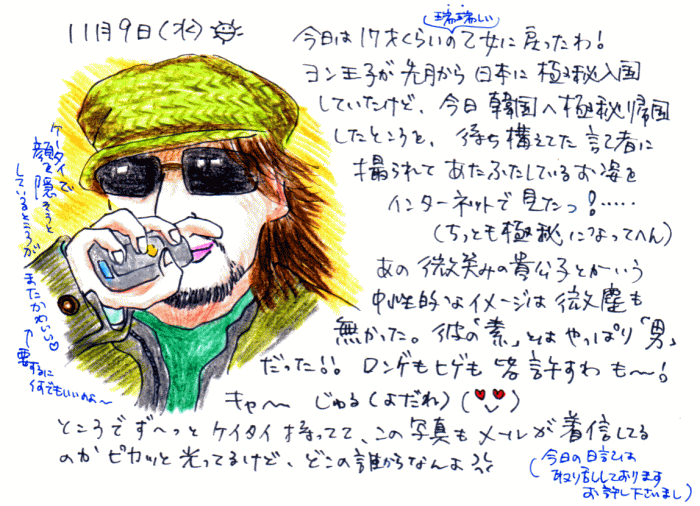 11月9日(水)
瑞瑞しい
今日は17才くらいの乙女に戻ったわ!
ヨン王子が先月から日本に極秘入国
していたけど、今日韓国へ極秘帰国
したところを、待ち構えてた記者に
撮られてあたふたしているお姿を
インターネットで見たっ!……
(ちっとも極秘になってへん)
あの微笑みの貴公子とかいう
中性的なイメージは微塵も
無かった。彼の「素」とはやっぱり「男」
だった!! ロンゲもヒゲも皆許すわも〜!
キャ〜 じゅる(よだれ)
ところでず〜っとケイタイ持ってて、この写真もメールが着信してる
のかピカッと光ってるけど、どこの誰からなんよ
(今日の日記は
取り乱しております
お許し下さいまし)
ケータイで
顔を隠そうと
しているところが
またかわいい♡
↑要するに
何でもいいのよ〜